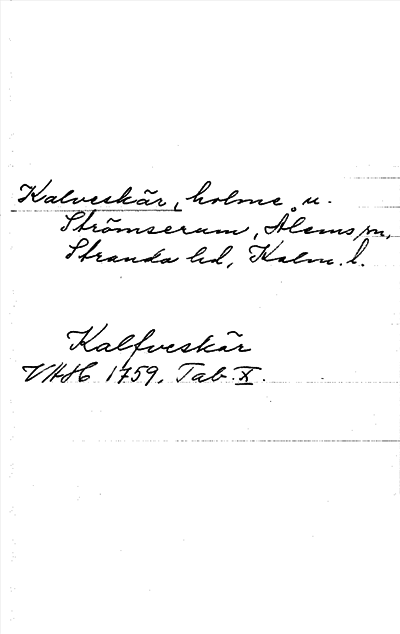 Kalveskär, holme u.
Strömserum, Ålems sn,
Stranda hd, Kalm. l.
Kalfveskär
VAH 1759. Tab. X.